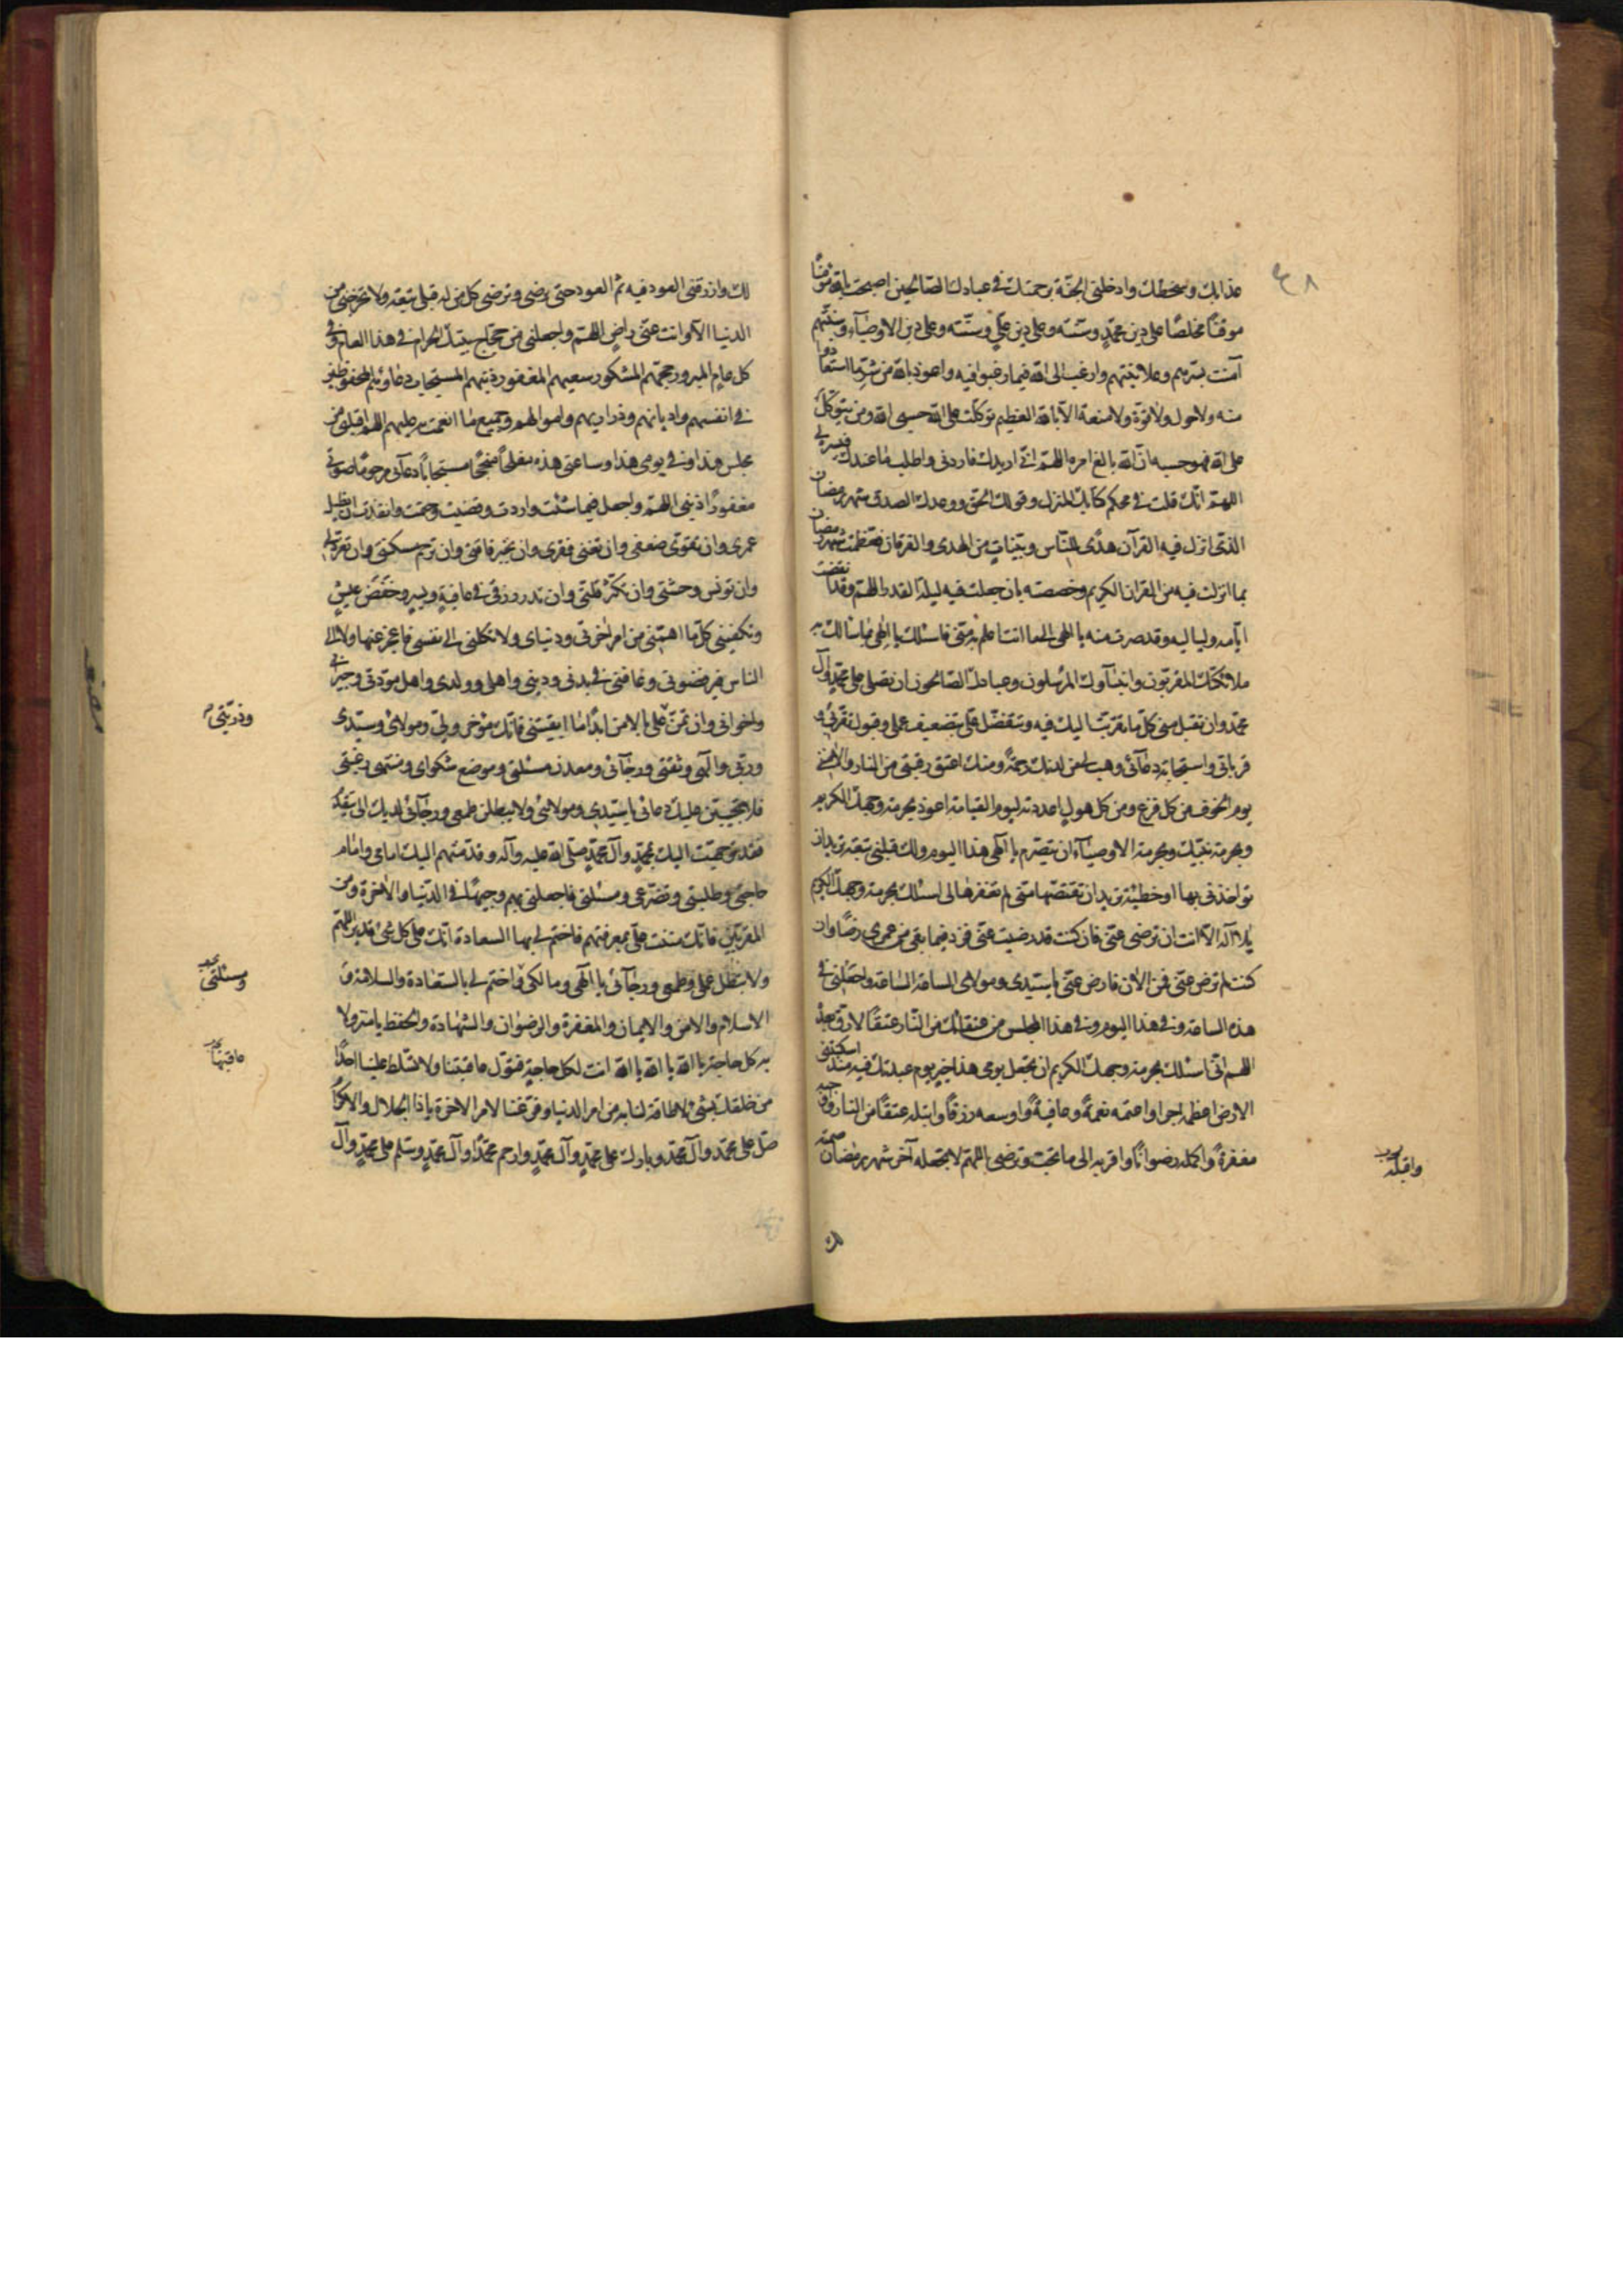 ٤٨
عذابك وسخطك وادخلنى الجنّة برحمتك فى عبادك الصّالحين اصبحت بالله مؤمنًا
موقنًا مخلصًا على دين محمّدٍ وسنّته وعلى دين علىٍّ وسنّته وعلى دين الاوصيآء وسنّتهم
آمنت بسرّهم وعلانيتهم وارغب الى الله فيما رغبوا فيه واعوذ بالله من شرّ ما استعاذوا
منه ولا حول ولا قوّة ولا منعة الّا بالله العظيم توكّلت على الله حسبى الله ومن يتوكّل
على الله فهو حسبه انّ الله بالغ امره اللهمّ انّى اريدك فاردنى واطلب ما عندك فيسّر لى
اللهمّ انّك قلت فى محكم كتابك المنزل وقولك الحقّ ووعدك الصدق شهر رمضان
الذى انزل فيه القرآن هدًى للنّاس وبيّناتٍ من الهدى والفرقان فعظّمت شهر رمضان
بما انزلت فيه من القران الكريم وخصصته بان جعلت فيه ليلة القدر اللهمّ وقد انقضت
ايّامه ولياليه وقد صرت منه يا الهى الى ما انت اعلم به منّى فاسئلك يا الهى بما سالك به
ملائكتك المقرّبون وانبيآوك المرسلون وعبادك الصّالحون ان تصلى على محمّدٍ وآل
محمّد وان تقبل منّى كلّ ما تقرّبت اليك فيه وتتفضّل علىّ بتضعيف عملى وقبول تقرّبى و
قرباتى واستجابة دعآئى وهب لى من لدنك رحمةً ومنك اعتق رقبتى من النار والامن
يوم الخوف من كل فزع ومن كل هولٍ اعددته ليوم القيامة اعوذ بحرمة وجهك الكريم
وبحرمة نبيّك وبحرمة الاوصيآء ان يتصرّم يا الهى هذا اليوم ولك قبلى تبعة تريد ان
تواخذنى بها او خطيئة تريد ان تقتصّها منّى لم تغفرها لى اسئلك بحرمة وجهك الكريم
يا لا اله الّا انت ان ترضى عنّى فان كنت قد رضيت عنّى فزد فيما بقى من عمرى رضًا وان
كنت لم ترض عنّى فمن الان فارض عنّى يا سيّدى ومولاى الساعة الساعة واجعلنى فى
هذه الساعة وفى هذا اليوم وفى هذا المجلس من عتقائك من النّار عتقًا لا رقّ بعده
اللهم انّى اسئلك بحرمة وجهك الكريم ان تجعل يومى هذا خير يوم عبدتك فيه منذ اسكنتنى
الارض اعظمه اجرا واعمّه نعمةً وعافيةً واوسعه رزقًا وابتله عتقًا من النار واوجبه
مغفرةً واكمله رضوانًا واقربه الى ما تحبّ وترضى اللهمّ لا تجعله آخر شهر رمضان صمته
واقبله
لك
لك وارزقنى العود فيه ثمّ العود حتى ترضى وترضى كل من له قبلى تبعة ولا تخرجنى من
الدنيا الّا وانت عنّى راضٍ اللهمّ واجعلنى من حجّاج بيتك الحرام فى هذا العام وفى
كل عامٍ المبرور حجّهم المشكور سعيهم المغفور ذنبهم المستجاب دعاؤهم المحفوظين
فى انفسهم واديانهم وذراريهم واموالهم وجميع ما انعمت به عليهم اللهمّ اقلبنى من
مجلسى هذا وفى يومى هذا وساعتى هذه مفلحًا منجحًا مستجابًا دعآئى مرحومًا صوتى
مغفورًا ذنبى اللهمّ واجعل فيما شئت واردت وقضيت وحتمت وانفذت ان تطيل
عمرى وان تقوّى ضعفى وان تغنى فقرى وان تجبر فاقتى وان ترحم مسكنتى وان تعزّ ذلّى
وان تونس وحشتى وان تكثّر قلّتى وان تدرّ رزقى فى عافيةٍ ويسرٍ وخفض عيشٍ
وتكفينى كلّ ما اهمّنى من امر اخرتى ودنياى ولا تكلنى الى نفسى فاعجز عنها ولا الى
الناس فيرفضونى وعافنى فى بدنى ودينى واهلى وولدى واهل مودّتى وجيرانى
وذرّيّتى
واخوانى وان تمنّ علىّ بالامن ابدًا ما ابقيتنى فانّك ولىّ ومولاى وسيّدى
وربّى والهى وثقتى ورجآئى ومعدن مسئلتى وموضع شكواى ومنتهى رغبتى
فلا تخيّبنّ عليك دعائى يا سيّدى ومولائى ولا يبطلنّ طمعى ورجآئى لديك الهى
فقد توجّهت اليك بمحمّدٍ وآل محمّدٍ صلّى الله عليه وآله وقدّمتهم اليك امامى وامام
حاجتى وطلبتى وتضرّعى ومسئلتى فاجعلنى بهم وجيهًا فى الدّنيا والاخرة ومن
المقرّبين فانّك مننت علىّ بمعرفتهم فاختم لى بها السعادة انّك على كل شئ قدير اللهمّ
ولا تبطل عملى وطمعى ورجآئى يا الهى ومالكى واختم لى بالسعادة والسلامة و
ومسئلتى
الاسلام والامن والايمان والمغفرة والرضوان والشهادة والحفظ يا منزولا
به كل حاجة يا الله يا الله يا الله انت لكل حاجةٍ فتولّ عاقبتنا ولا تسلّط علينا احدًا
عاقبتها
من خلقك بشئ لا طاقة لنا به من امر الدنيا وفرّغنا لامر الاخرة يا ذا الجلال والاكرام
صلّ على محمّد وآل محمّد وبارك على محمّدٍ وآل محمّدٍ وارحم محمّدًا وآل محمّدٍ وسلّم على محمّدٍ وآل